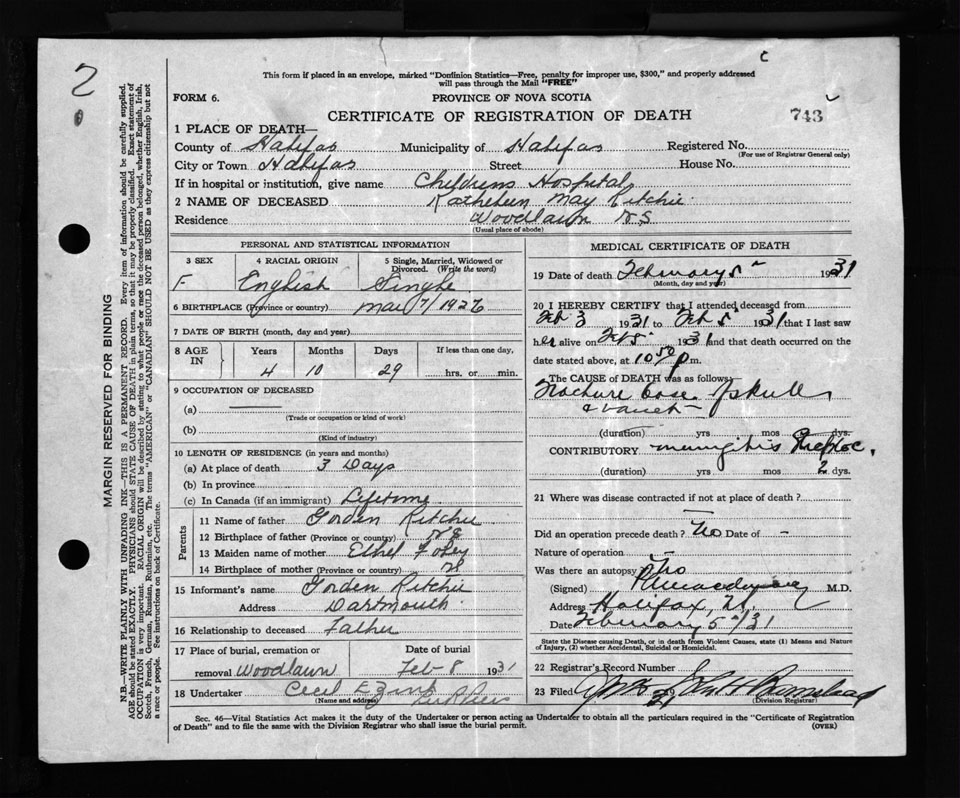 2
This form if placed in an envelope, marked "Dominion Statistics—Free, penalty for improper use, $300," and properly addressed
will pass through the Mail "FREE"
FORM 6.
PROVINCE OF NOVA SCOTIA
CERTIFICATE OF REGISTRATION OF DEATH
743
MARGIN RESERVED FOR BINDING
N.B.—WRITE PLAINLY WITH UNFADING INK—THIS IS A PERMANENT RECORD. Every item of information should be carefully supplied.
AGE should be stated EXACTLY. PHYSICIANS should STATE CAUSE OF DEATH in plain terms, so that it may be properly classified. Exact statement of
OCCUPATION is very important. RACIAL ORIGIN will be described by stating to what people or race the deceased person belonged, whether English, Irish,
Scotch, French, German, Russian, Ruthenian, etc. The terms "AMERICAN" or "CANADIAN" SHOULD NOT BE USED as they express citizenship but not
a race or people. See instructions on back of Certificate.
1 PLACE OF DEATH—
County of Halifax Municipality of Halifax Registered No.
(For use of Registrar General only)
City or Town Halifax Street House No.
If in hospital or institution, give name Childrens Hospital
2 NAME OF DECEASED Kathleen May Ritchie
Residence Woodlawn N S
(Usual place of abode)
PERSONAL AND STATISTICAL INFORMATION
3 SEX 4 RACIAL ORIGIN 5 Single, Married, Widowed or Divorced. (Write the word)
F English Single
6 BIRTHPLACE (Province or country) Mar 7/1926
7 DATE OF BIRTH (month, day and year)
8 AGE IN Years Months Days If less than one day,
4 10 29 hrs. or min.
9 OCCUPATION OF DECEASED
(a) —
(Trade or occupation or kind of work)
(b)
(Kind of industry)
10 LENGTH OF RESIDENCE (in years and months)
(a) At place of death 3 Days
(b) In province
(c) In Canada (if an immigrant) Lifetime
Parents
11 Name of father Gorden Ritchie
12 Birthplace of father (Province or country) NS
13 Maiden name of mother Ethel Foley
14 Birthplace of mother (Province or country) NS
15 Informant's name Gorden Ritchie
Address Dartmouth
16 Relationship to deceased Father
17 Place of burial, cremation or removal Woodlawn Date of burial Feb 8 1931
18 Undertaker Cecil E Zink
(Name and address)
MEDICAL CERTIFICATE OF DEATH
19 Date of death February 5 1931
(Month, day and year)
20 I HEREBY CERTIFY that I attended deceased from
Feb 3 1931 to Feb 5 1931 that I last saw
her alive on Feb 5 1931 and that death occurred on the
date stated above, at 10 50 p m.
The CAUSE of DEATH was as follows:
Fracture base of skull
& vault
(duration) yrs mos dys.
CONTRIBUTORY meningitis Streptoc.
(duration) yrs mos 2 dys.
21 Where was disease contracted if not at place of death?
—
Did an operation precede death? No Date of —
Nature of operation —
Was there an autopsy No
(Signed) M.D.
Address Halifax, N.S.
Date February 5/31
State the Disease causing Death, or in death from Violent Causes, state (1) Means and Nature
of Injury, (2) whether Accidental, Suicidal or Homicidal.
22 Registrar's Record Number
23 Filed
(Division Registrar)
Sec. 46—Vital Statistics Act makes it the duty of the Undertaker or person acting as Undertaker to obtain all the particulars required in the "Certificate of Registration
of Death" and to file the same with the Division Registrar who shall issue the burial permit. (OVER)